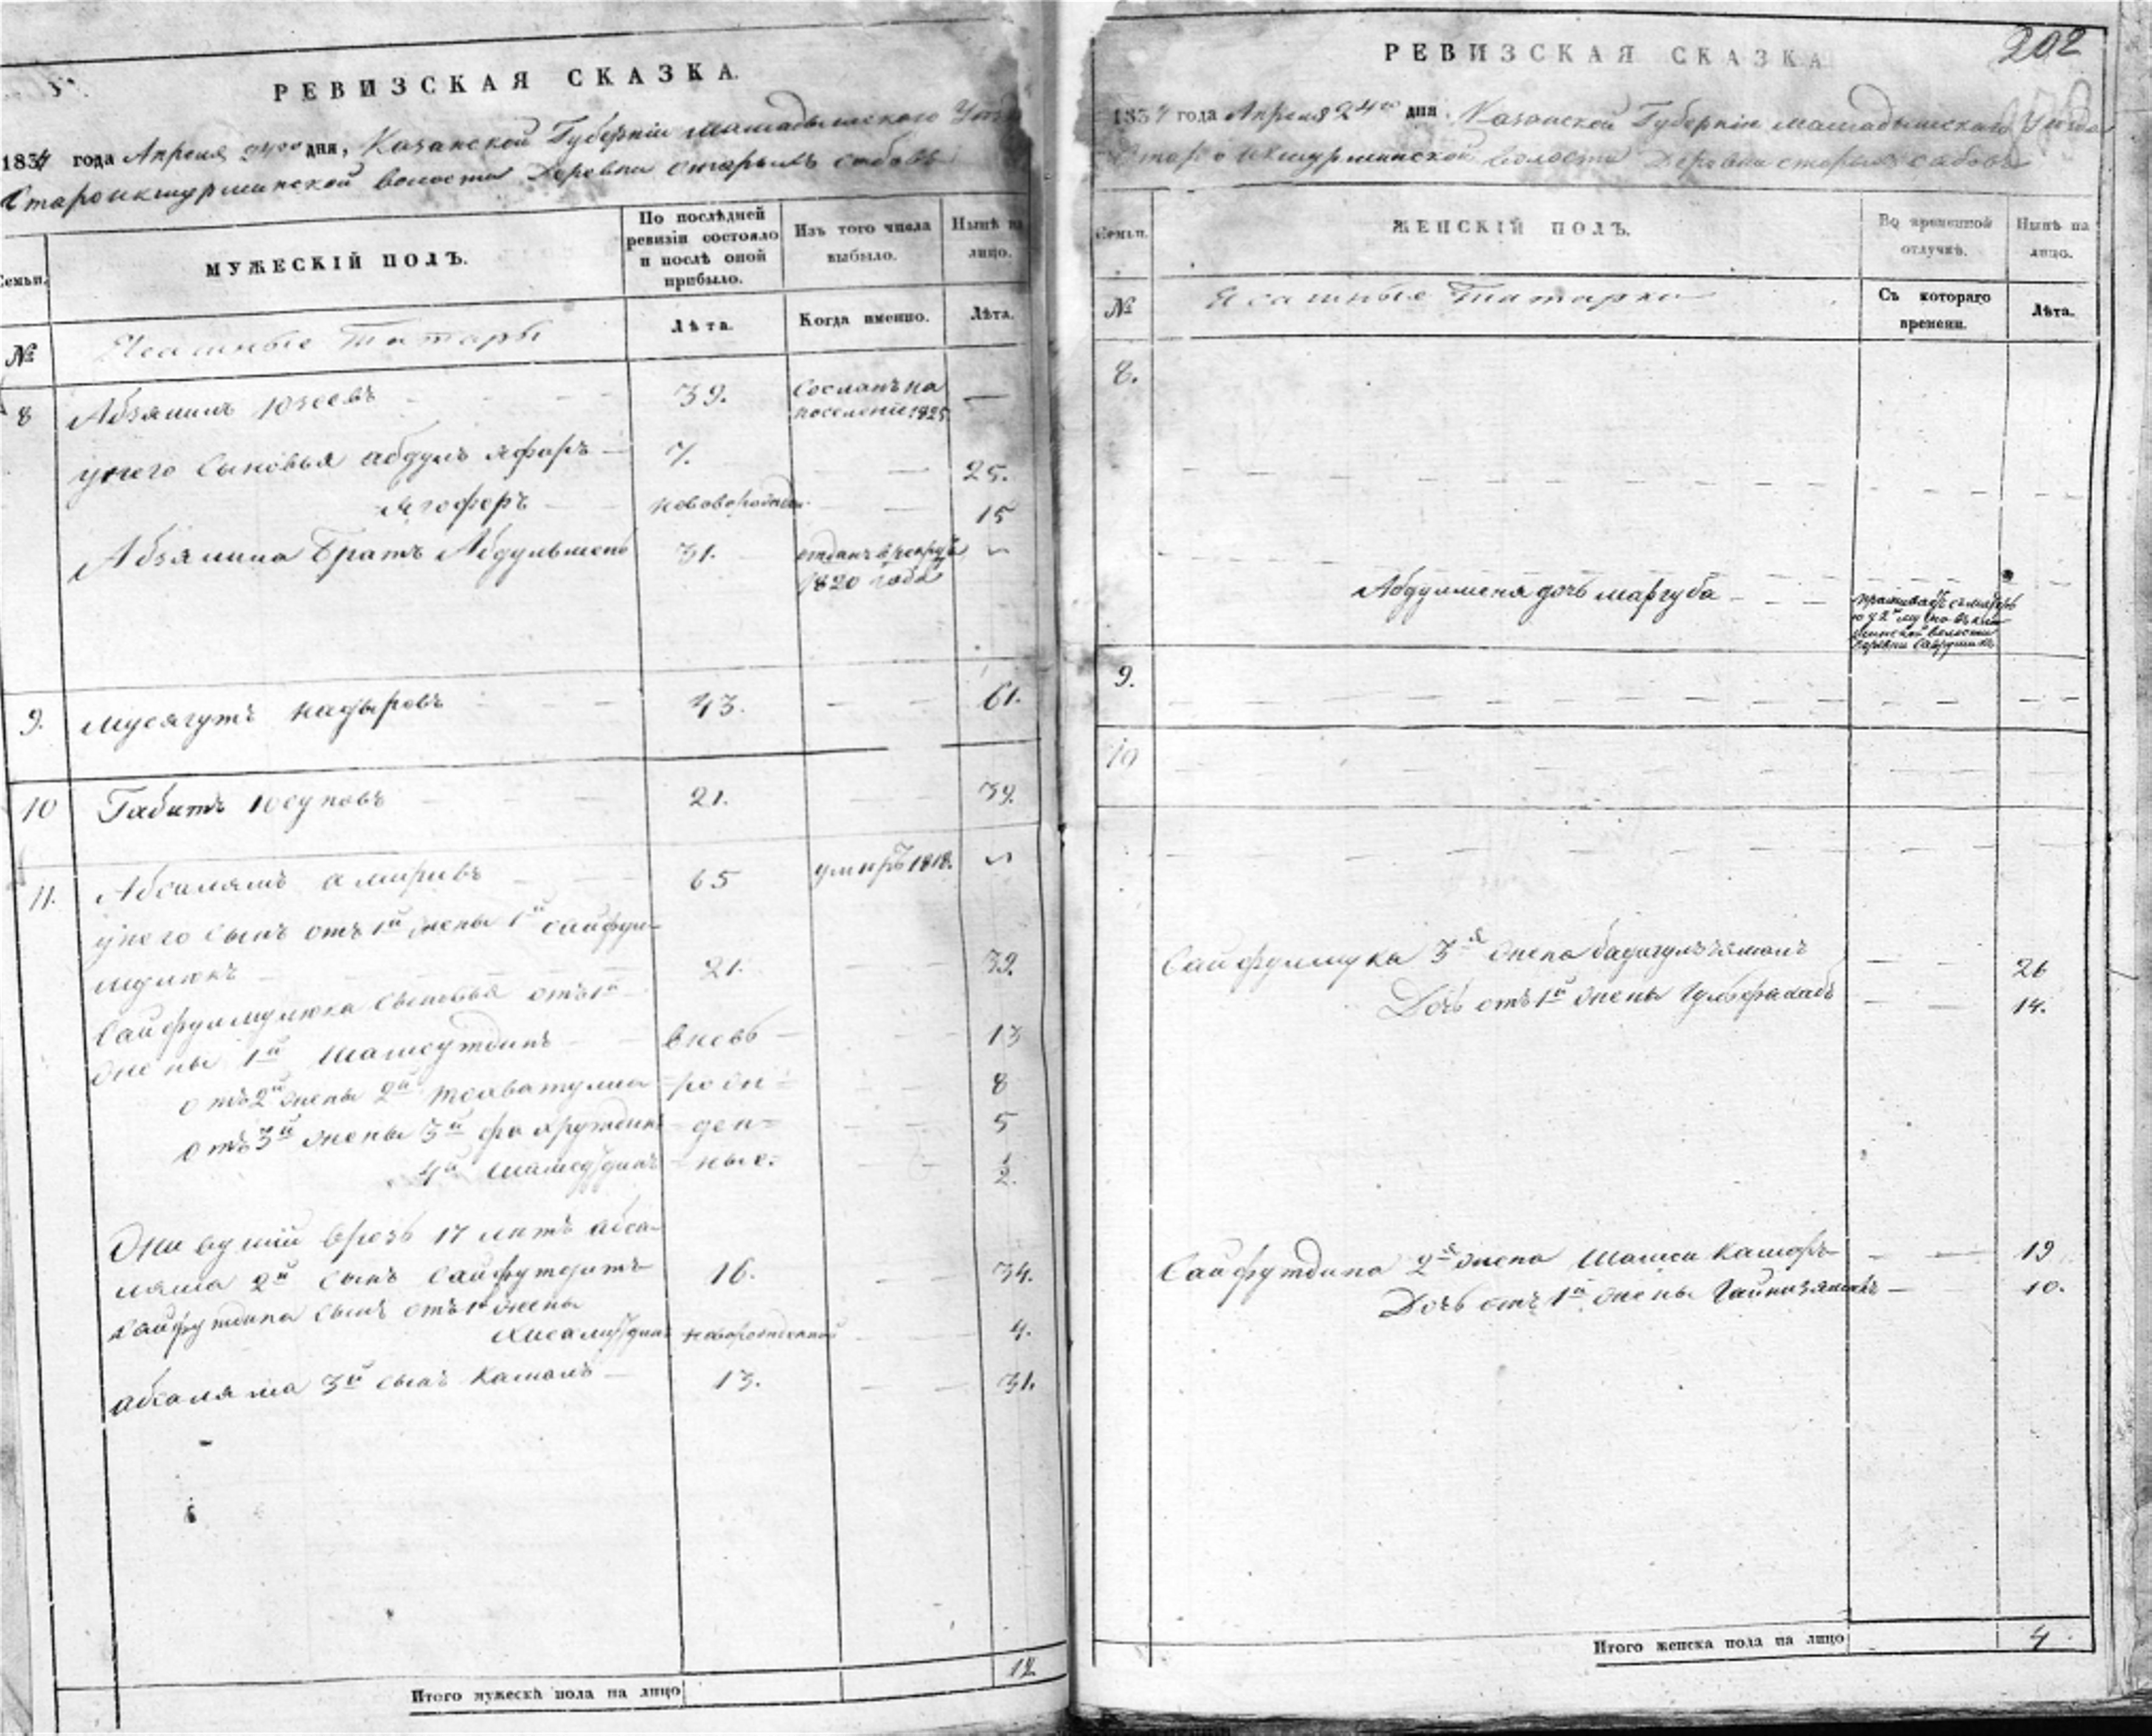 РЕВИЗСКАЯ СКАЗКА.
1834 года Апреля 24го дня, Казанской Губернiи мамадышского Уезда
Староикшурминской волости Деревни старыхъ сабовъ
Семьи.
МУЖЕСКІЙ ПОЛЪ.
По послѣдней ревизіи состояло и послѣ оной прибыло.
Изъ того числа выбыло.
Нынѣ на лицо.
№
Ясашные Татары
Лѣта.
Когда именно.
Лѣта.
8 Абзялилъ Юзеевъ 39. Сосланъ на —
поселение 1825
у него Сыновья абдулъ яфаръ — 7. — 25.
Ягоферъ 15
Абзялила Братъ Абдульменъ 31. отданъ в рекруты
1820 года
9. Мусягутъ надыровъ 43. — — 61.
10 Габитъ Юсуповъ 21. 39.
11. Абсалямъ амировъ 65 умиръ 1818.
у него Сынъ отъ 1й жены 1й сайфул-
мулюкъ 21. — — 39.
Сайфулмулюка Сыновья отъ 1й
жены 1й Шамсутдинъ вновь — 13
отъ 2й жены 2й = рож = 8
отъ 3й жены 3й фахрутдинъ = ден = 5
4й = ные. 1/2
Живущiй врозь 17 летъ абса-
ляма 2й Сынъ Сайфутдинъ 16. — — 34.
Сайфутдина Сынъ отъ 1й жены
новорожденной 4.
абсаляма 3й сынъ Камалъ — 13. — — 31.
Итого мужеска пола на лицо 12
202
РЕВИЗСКАЯ СКАЗКА
1834 года Апреля 24го дня. Казанской Губернiи мамадышскаго Уезда
Староикшурминской волости Деревни старыхъ сабовъ
Семьи.
ЖЕНСКІЙ ПОЛЪ.
Во временной отлучкѣ.
Нынѣ на лицо.
№
Ясашные Татарки
Съ котораго времени.
Лѣта.
8.
Абдулменя дочь маргуба — — —
9.
10
Сайфулмулка 3я жена — — 26
Дочь отъ 1й жены — — 14.
Сайфутдина 2я жена — — 19
Дочь отъ 1й жены — 10.
Итого женска пола на лицо 4